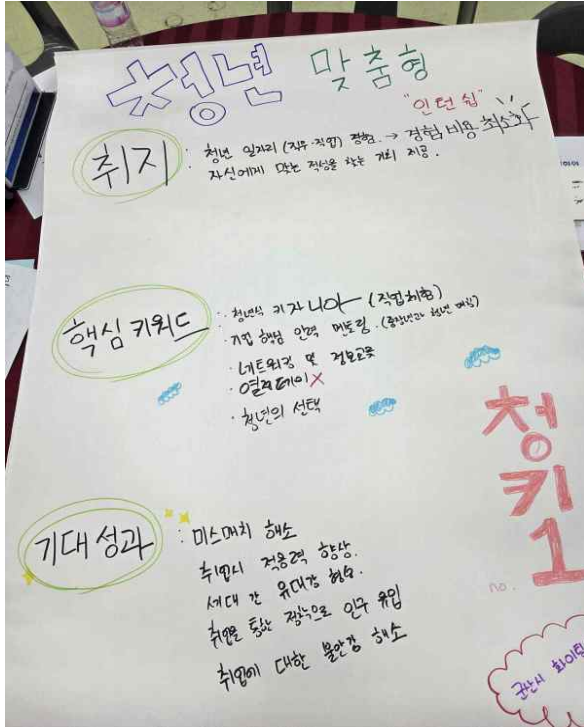 청년 맞춤형
"인턴쉽"
취지 : 청년 일자리 (직무·직업) 경험. → 경험, 비용 최소화
자신에게 맞는 적성을 찾는 기회 제공.
핵심 키워드 : · 청년식 키자니아 (직업체험)
· 기업 핵심 인력 멘토링. (중장년과 청년 매칭)
· 네트워킹 및 정보교류
· 열정페이X
· 청년의 선택
기대성과 : 미스매치 해소
취업시 적응력 향상.
세대 간 유대감 형성.
취업을 통한 정착으로 인구 유입
취업에 대한 불안감 해소
청
키
no. 1
군산시 화이팅